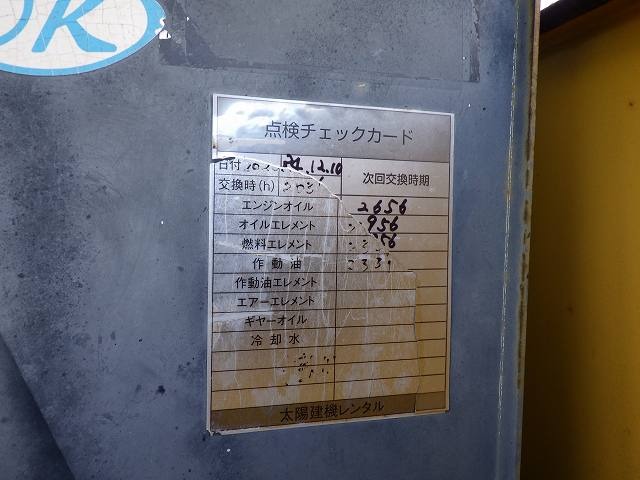 OK
点検チェックカード
日付 12.10
交換時(h) 次回交換時期
エンジンオイル 2656
オイルエレメント 956
燃料エレメント
作動油
作動油エレメント
エアーエレメント
ギヤーオイル
冷却水
太陽建機レンタル